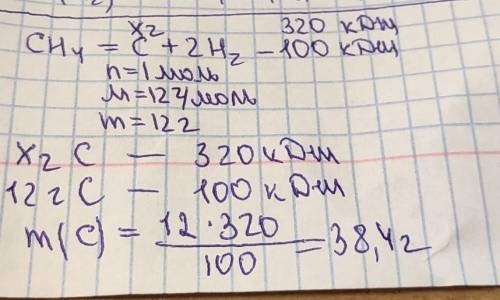 x г 320 кДж
CH₄ = C + 2H₂ - 100 кДж
n = 1 моль
M = 12 г/моль
m = 12 г
x г C — 320 кДж
12 г C — 100 кДж
m(C) = 12 · 320 / 100 = 38,4 г